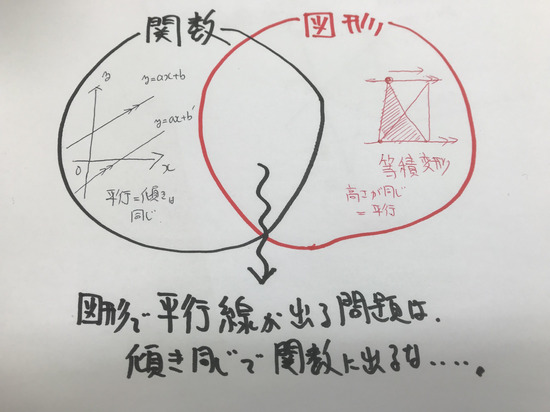 関数
図形
y
y=ax+b
y=ax+b'
0
x
平行=傾きは
同じ
等積変形
高さが同じ
=平行
図形で平行線が出る問題は、
傾き同じで関数に出るな.....。